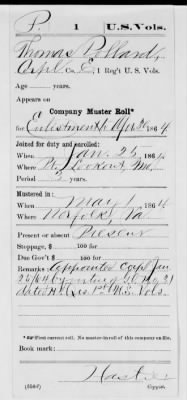 P. 1 U.S. Vols.
Thomas Pollard,
Corpl, Co. E, 1 Reg't U. S. Vols.
Age years.
Appears on
Company Muster Roll*
for Enlistment to Apr 30, 1864.
Joined for duty and enrolled:
When Jan. 25, 1864
Where Pt. Lookout, Md.
Period 3 years.
Mustered in:
When May 1, 1864
Where Norfolk, Va
Present or absent Present
Stoppage, $ 100 for
Due Gov't $ 100 for
Remarks: Appointed Corpl Jan
25/64 by virtue of No. 21
dated Hd Qrs 1st U.S. Vols.
*First current roll. No muster-in roll of this company on file.
Book mark:
(358)
Copyist.